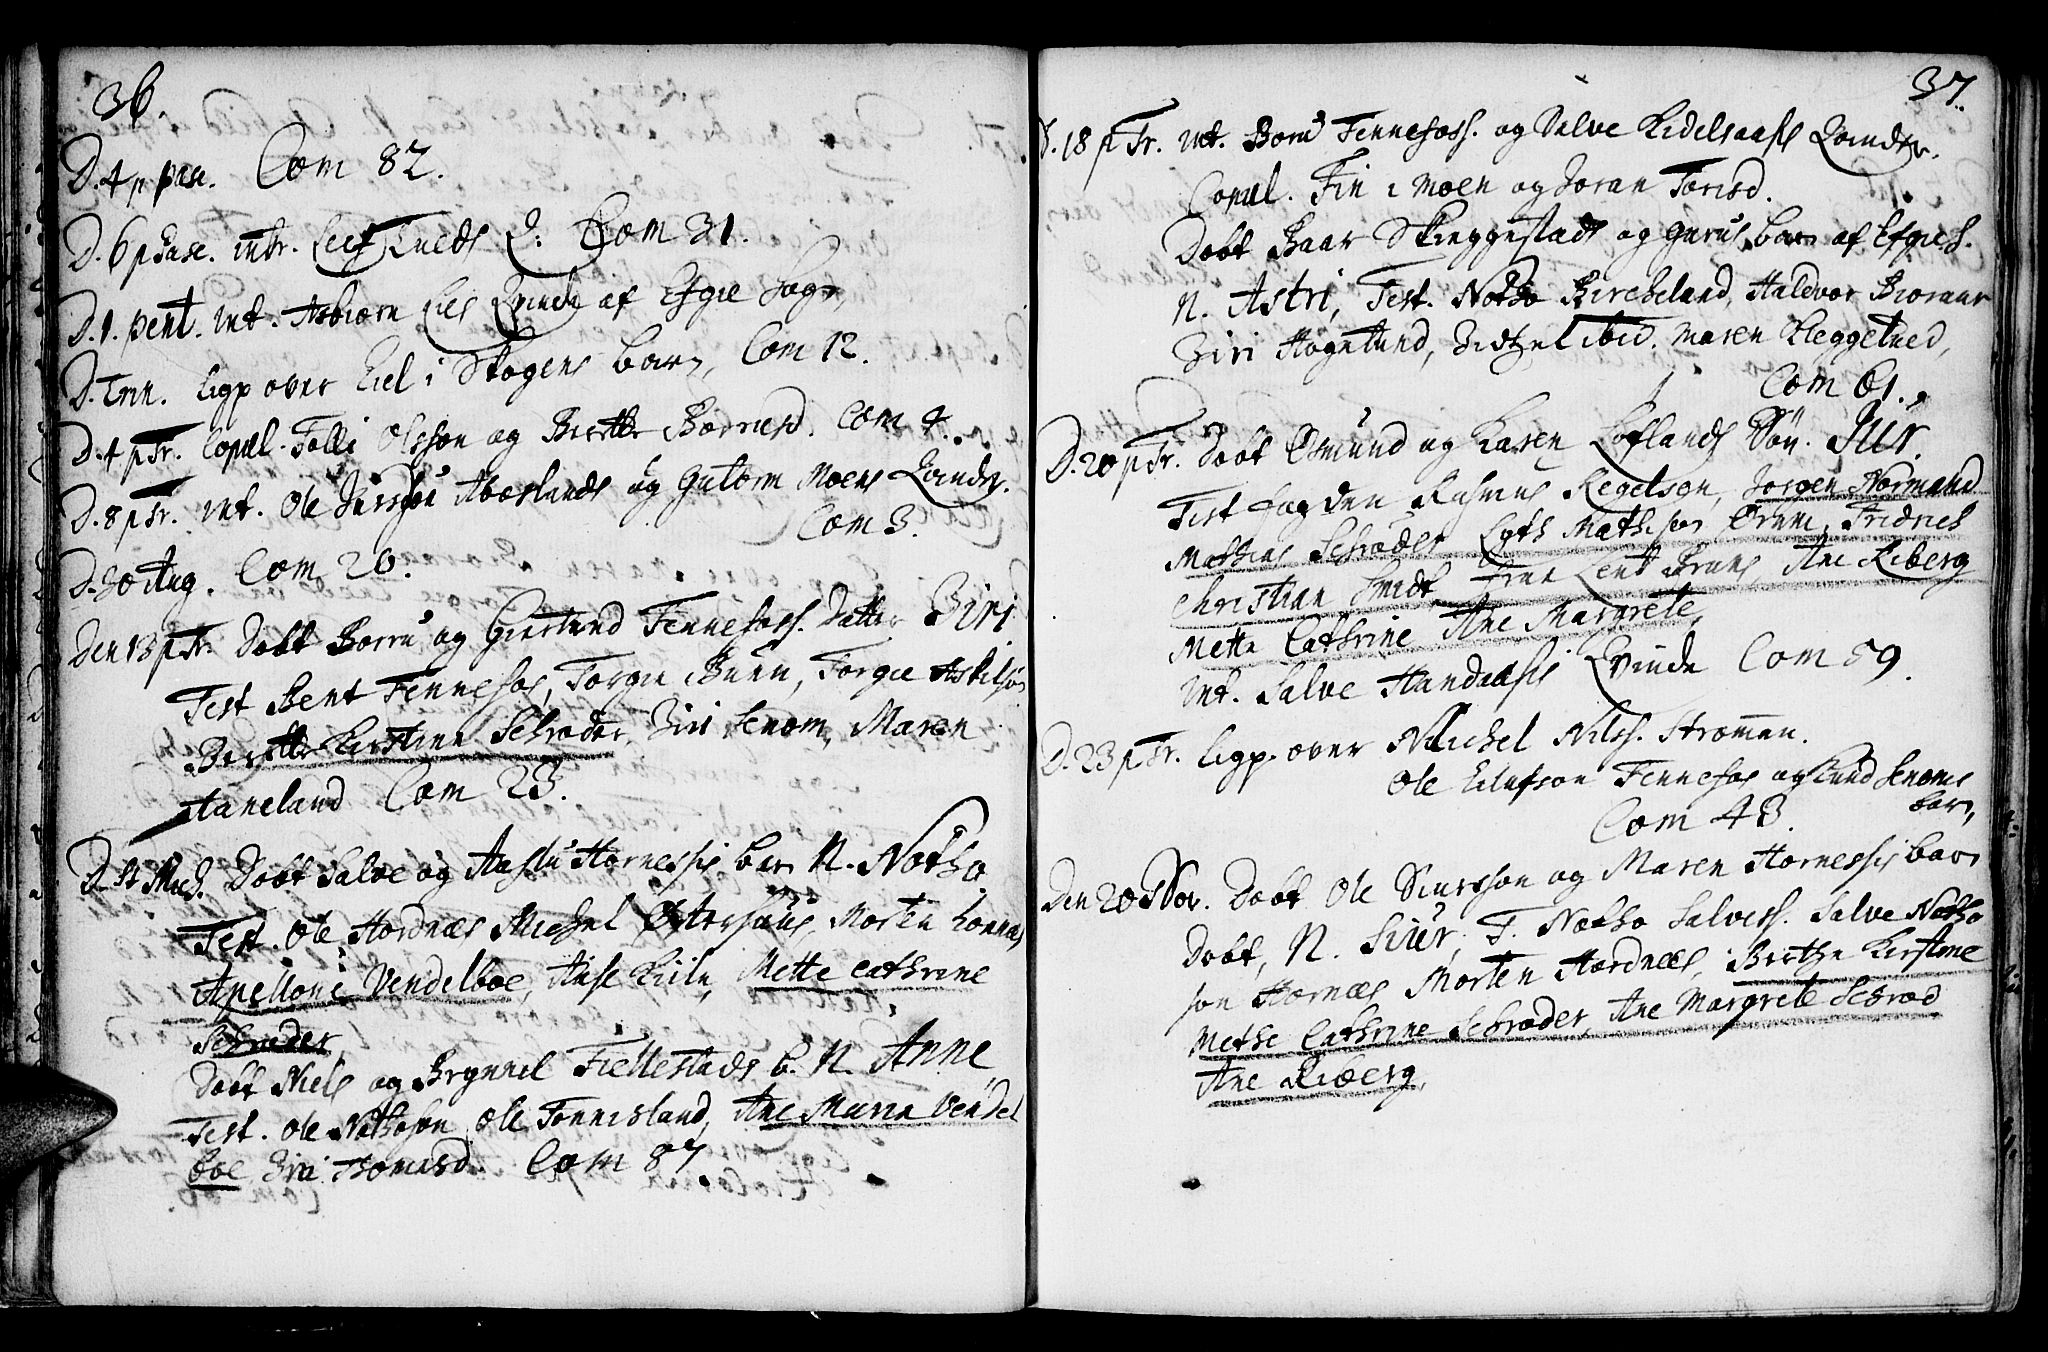 36.
D. 4 p pasc. Com 82.
D. 6 p Pasc. intr. Leef Tueds Q: Com 31.
D. 1. pent. int. Asbiørn Lies Qvinde af Efgie Sogn,
D. Trin. ligp over Eiel i Skogens barn, Com 12.
D. 4 p Tr. Copul. Folli Olsson og Berthe Børriesd. Com 4.
D. 8 p Tr. int. Ole Abœslands og Gutorm Moens Qvinder.
Com 3.
D. 30 Aug. Com 20.
Den 13 p Tr. Døbt Børru og Giertrud Fennefoss. Datter Siri
Test Bent Fennefos, Torgie Buen, Torgie Askilsøn
Berthe Kirstine Schrøder, Siri Senom, Maren
Haneland Com 23.
D. St Mich. Døbt Salve og Aaslu Hornessis barn N. Notho
Test. Ole Hordnæs Michel Østerhuus, Morten
Apelloni Vendelboe, Aase Kiile, Mette Cathrine
Schrøder
Døbt Niels og Brynnel Fiellestads b. N. Anne
Test. Ole Nothoson, Ole Tonnesland, Ane Maria Vendel
boe Siri Thomesd. Com 87.
37.
D. 18 p Tr. int. Børu Fennefoss. og Salve Kidelsaasis Qvinder.
Copul. Fin i Moen og Joran Torisd.
Døbt Baar Skieggestads og Gurus barn af Efgie S.
N. Astri, Test. Notho Bircheland, Haldvor Bioraae
Siri Høgelund, ibid. Maren Kleggetved,
Com 61.
D. 20 p Tr. Døbt Osmund og Karen Loflands Søn. Siur.
Test Fogden Rasmus Regelsøn, Jørgen Normand
Mathias Schrøder Mathison Ørnne, Fridrich
Christian Smidt, Bruns, Ane Riberg
Mette Cathrine Ane Margrete,
int. Salve Handaasis Qvinde Com 59.
D. 23 p Tr. ligp. over Michel Nilss. Strømmen.
Ole Eilufson Fennefos og Knud Senoms
barn,
Com 43.
Den 20 Nov. Døbt Ole Siursson og Maren Hornessis barn
Døbt, N. Siur, T. Notho Salvess. Salve Notho
søn Hornæs Morten Hordnæs, Berthe Kirstine
Methe Cathrine Schrøder, Ane Margrete Schrød
Ane Riberg,